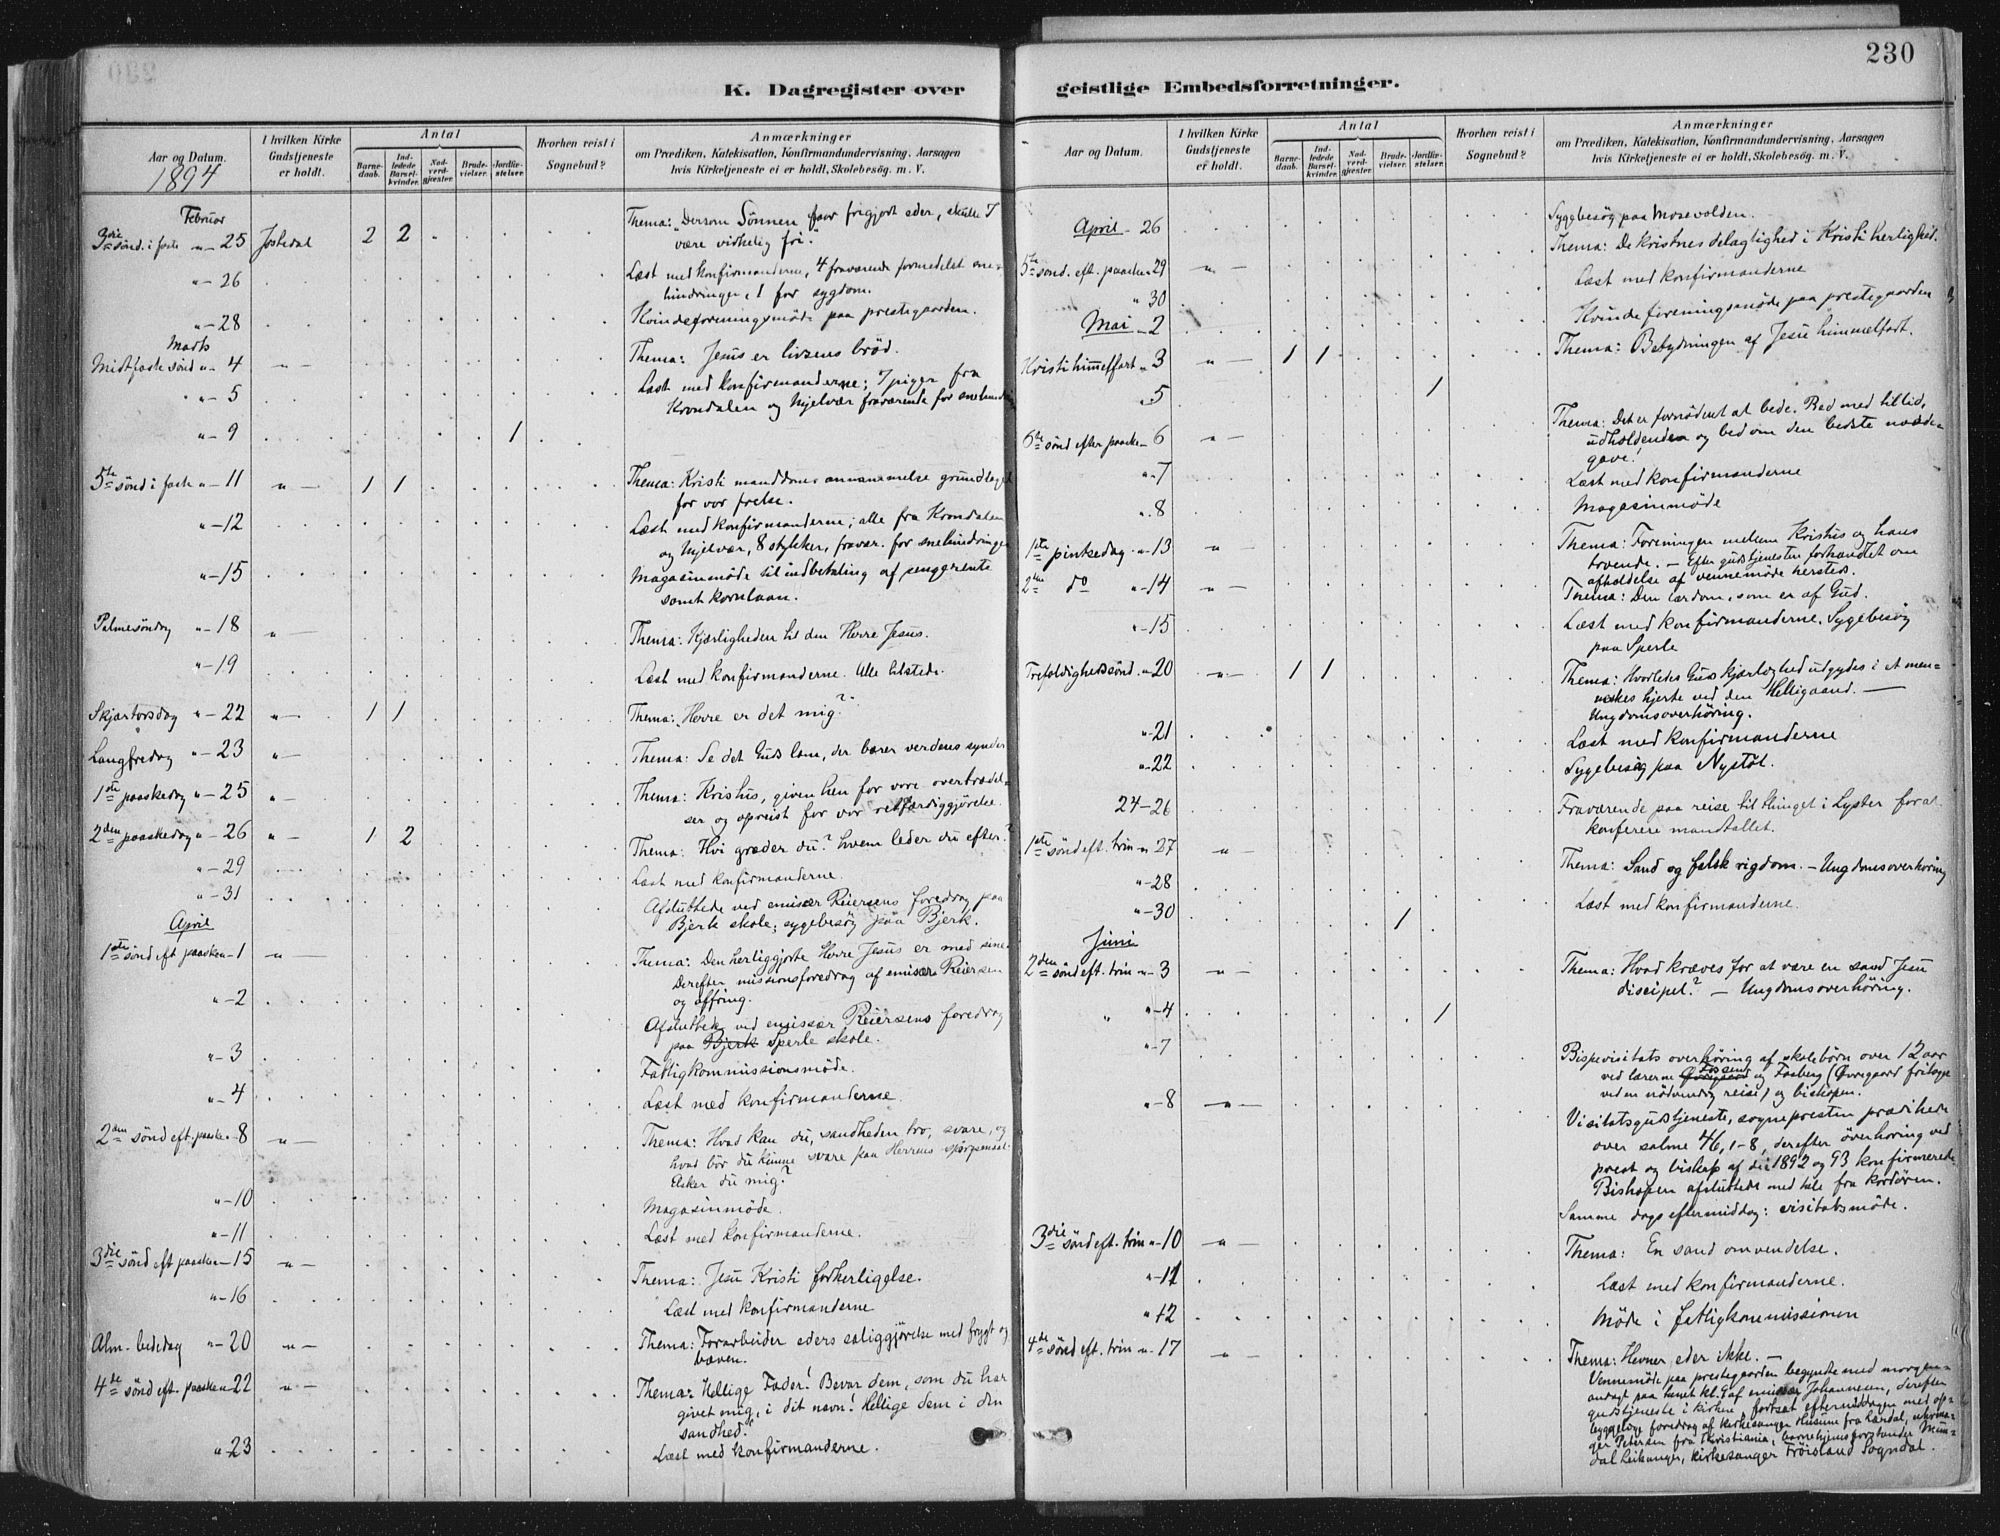 230
K. Dagregister over geistlige Embedsforretninger.
Aar og Datum.
1894
I hvilken Kirke Gudstjeneste er holdt.
Antal
Barne-daab.
Ind-ledede Barsel-kvinder.
Nad-verd-gjester.
Brude-vielser.
Jordfæ-stelser.
Hvorhen reist i Sognebud?
Anmærkninger
om Prædiken, Katekisation, Konfirmandundervisning, Aarsagen
hvis Kirketjeneste ei er holdt, Skolebesøg. m. V.
Februar
3die sönd. i faste " - 25 Jostedal 2 2 Thema: "Dersom Sönnen faar frigjort eder, skulle I
være virkelig fri."
" - 26 Læst med konfirmanderne, 4 fraværende formedelst sne-
hindringer, 1 for sygdom.
" - 28 Kvindeforeningsmöde paa prestegaarden.
Marts
Midtfaste sönd " - 4 " - Thema: Jesus er livsens bröd.
" - 5 Læst med konfirmanderne; 7 piger fra
Krondalen og Mjelvær fraværende for snehindring
" - 9 1
5te sönd i faste " - 11 " - 1 1 Thema: Kristi manddoms annammelse grundlaget
for vor frelse.
" - 12 Læst med konfirmanderne; alle fra Krondalen
og Mjelvær, 8 stykker, fravær. for snehindringer
" - 15 Magasinmöde til indbetaling af pengerente
samt kornlaan.
Palmesöndag " - 18 " - Thema: Kjærligheden til den Herre Jesus.
" - 19 Læst med konfirmanderne. Alle tilstede.
Skjærtorsdag " - 22 " - 1 1 Thema: "Herre er det mig?"
Langfredag " - 23 " - Thema: Se det Guds lam, der bærer verdens synder
1ste paaskedag " - 25 " - Thema: Kristus, given hen for vore overtrædel-
ser og opreist for vor retfærdiggjörelse.
2den paaskedag " - 26 " - 1 2 Thema: Hvi græder du? hvem leder du efter?
" - 29 Læst med konfirmanderne.
" - 31 Afsluttede ved emissær Reiersens foredrag paa
Bjerk skole; sygebesög paa Bjerk.
April
1ste sönd eft paasken - 1 " - Thema: Den herliggjorte Herre Jesus er med sine.
Derefter missionsforedrag af emisær Reiersen
og offring.
" - 2 Afsluttede ved emissær Reiersens foredrag
paa Bjerk Sperle skole.
" - 3 Fattigkommissionsmöde.
" - 4 Læst med konfirmanderne
2den sönd eft. paaske - 8 " - Thema: Hvad kan du, sandheden tro, svare, og
hvad bör du kunne svare paa Herrens spörgsmaal:
Elsker du mig?
" - 10 Magasinmöde.
" - 11 Læst med konfirmanderne.
3die sönd eft paasken - 15 " - Thema: Jesu Kristi forherligelse.
" - 16 Læst med konfirmanderne
Alm. bededag " - 20 " - Thema: Forarbeider eders saliggjörelse med frygt og
bæven.
4de sönd eft. paasken - 22 " - Thema: Hellige Fader! Bevar dem, som du har
givet mig, i dit navn! Hellige dem i din
sandhed!
" - 23 Læst med konfirmanderne.
Aar og Datum.
I hvilken Kirke Gudstjeneste er holdt.
Antal
Barne-daab.
Ind-ledede Barsel-kvinder.
Nad-verd-gjester.
Brude-vielser.
Jordfæ-stelser.
Hvorhen reist i Sognebud?
Anmærkninger
om Prædiken, Katekisation, Konfirmandundervisning, Aarsagen
hvis Kirketjeneste ei er holdt, Skolebesøg. m. V.
April - 26 Sygebesög paa Mosevolden.
5te sönd. eft. paasken 29 " - Thema: De kristnes delagtighed i Kristi herlighed.
" 30 Læst med konfirmanderne
Mai - 2 Kvindeforeningsmöde paa prestegaarden
Kristi himmelfart " 3 " - 1 1 Thema: Betydningen af Jesu himmelfart.
" 5 1
6te sönd efter paaske - 6 " - Thema: Det er fornödent at bede. Bed med tillid,
udholdende og bed om den bedste naade-
gave!
" - 7 Læst med konfirmanderne
" 8 Magasinmöde
1ste pintsedag " - 13 " - Thema: Foreningen mellem Kristus og hans
troende. - Efter gudstjenesten forhandlet om
afholdelse af vennemöde hersteds.
2den do " - 14 " - Thema: Den lærdom, som er af Gud.
" - 15 Læst med konfirmanderne. Sygebesög
paa Sperle
Trefoldighedssönd. " 20 " - 1 1 Thema: Hvorledes Guds kjærlighed udgydes i et men-
neskes hjerte ved den Helligaand. -
Ungdomsoverhöring.
" - 21 Læst med konfirmanderne
" - 22 Sygebesög paa Nystöl.
24 - 26 Fraværende paa reise til thinget i Lyster for at
konferere mandtallet.
1ste sönd eft. trin " 27 " - Thema: Sand og falsk rigdom. - Ungdomsoverhöring
" - 28 Læst med konfirmanderne.
" - 30 1
Juni
2den sönd eft. trin " - 3 " - Thema: Hvad kræves for at være en sand Jesu
discipel? - Ungdomsoverhöring.
" " - 4 1
" - 7 Bispevisitats overhöring af skolebörn over 12 aar
ved lærerne Övregaard og Fåberg (Övregaard fritoges
ved en nödvendig reise) og biskopen.
" - 8 " - Visitatsgudstjeneste, sognepresten prædikede
over salme 46, 1-8, derefter överhöring ved
prest og biskop af de i 1892 og 93 konfirmerede
Bishopen afsluttede med tale fra kordören.
Samme dags eftermiddag: visitatsmöde.
3die sönd eft. trin " - 10 " - Thema: En sand omvendelse.
" - 11 Læst med konfirmanderne.
" 12 Möde i fattigkommissionen
4de sönd eft. trin " - 17 " - Thema: Hevner eder ikke. -
Vennemöde paa prestegaarden begyndte med morgen-
andagt paa tunet kl. 9 af emissær Johannesen, derefter
gudstjeneste i kirken fortsat eftermiddagen med op-
byggelige foredrag af kirkesanger Husum fra Lærdal, uhrma-
ger Petersen fra Kristiania, barnehjemsforstander Mun-
dal Leikanger, kirkesanger Fröisland Sogndal.